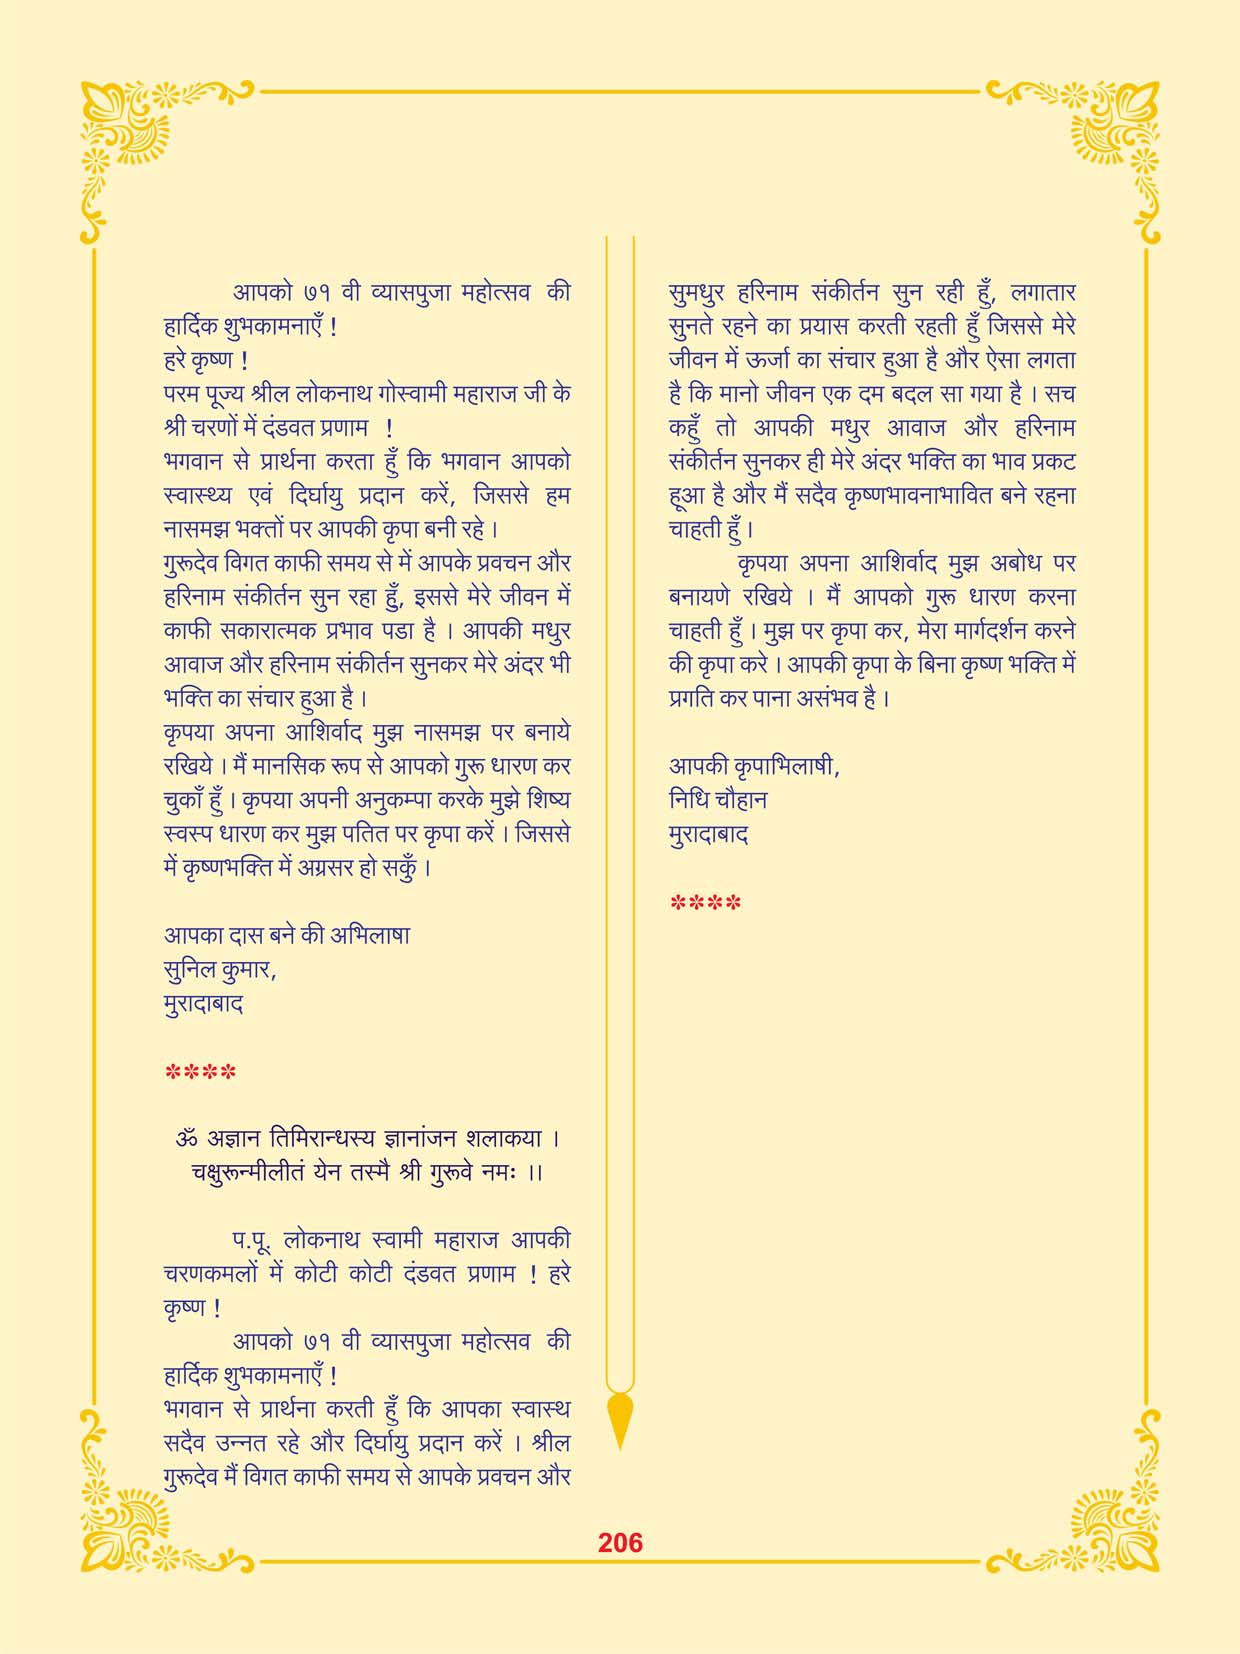 आपको ७१ वी व्यासपुजा महोत्सव की
हार्दिक शुभकामनाएँ !
हरे कृष्ण !
परम पूज्य श्रील लोकनाथ गोस्वामी महाराज जी के
श्री चरणों में दंडवत प्रणाम !
भगवान से प्रार्थना करता हुँ कि भगवान आपको
स्वास्थ्य एवं दिर्घायु प्रदान करें, जिससे हम
नासमझ भक्तों पर आपकी कृपा बनी रहे ।
गुरूदेव विगत काफी समय से में आपके प्रवचन और
हरिनाम संकीर्तन सुन रहा हुँ, इससे मेरे जीवन में
काफी सकारात्मक प्रभाव पडा है । आपकी मधुर
आवाज और हरिनाम संकीर्तन सुनकर मेरे अंदर भी
भक्ति का संचार हुआ है ।
कृपया अपना आशिर्वाद मुझ नासमझ पर बनाये
रखिये । मैं मानसिक रूप से आपको गुरू धारण कर
चुकाँ हुँ । कृपया अपनी अनुकम्पा करके मुझे शिष्य
स्वस्प धारण कर मुझ पतित पर कृपा करें । जिससे
में कृष्णभक्ति में अग्रसर हो सकुँ ।
आपका दास बने की अभिलाषा
सुनिल कुमार,
मुरादाबाद
****
ॐ अज्ञान तिमिरान्धस्य ज्ञानांजन शलाकया ।
चक्षुरून्मीलीतं येन तस्मै श्री गुरूवे नमः ।।
प.पू. लोकनाथ स्वामी महाराज आपकी
चरणकमलों में कोटी कोटी दंडवत प्रणाम ! हरे
कृष्ण !
आपको ७१ वी व्यासपुजा महोत्सव की
हार्दिक शुभकामनाएँ !
भगवान से प्रार्थना करती हुँ कि आपका स्वास्थ
सदैव उन्नत रहे और दिर्घायु प्रदान करें । श्रील
गुरूदेव मैं विगत काफी समय से आपके प्रवचन और
सुमधुर हरिनाम संकीर्तन सुन रही हुँ, लगातार
सुनते रहने का प्रयास करती रहती हुँ जिससे मेरे
जीवन में ऊर्जा का संचार हुआ है और ऐसा लगता
है कि मानो जीवन एक दम बदल सा गया है । सच
कहुँ तो आपकी मधुर आवाज और हरिनाम
संकीर्तन सुनकर ही मेरे अंदर भक्ति का भाव प्रकट
हूआ है और मैं सदैव कृष्णभावनाभावित बने रहना
चाहती हुँ ।
कृपया अपना आशिर्वाद मुझ अबोध पर
बनायणे रखिये । मैं आपको गुरू धारण करना
चाहती हुँ । मुझ पर कृपा कर, मेरा मार्गदर्शन करने
की कृपा करे । आपकी कृपा के बिना कृष्ण भक्ति में
प्रगति कर पाना असंभव है ।
आपकी कृपाभिलाषी,
निधि चौहान
मुरादाबाद
****
206